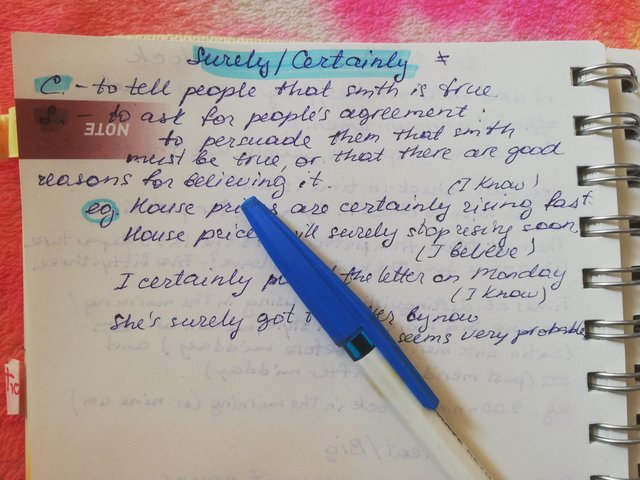 Surely/Certainly ≠
C. - to tell people that smth is true.
S. - to ask for people's agreement:
NOTE
to persuade them that smth
must be true, or that there are good
reasons for believing it.
(I know)
eg. House are certainly rising fast.
House surely stop rising soon.
(I believe)
I certainly the letter on Monday
(I know)
She's surely got by now
seems very probable